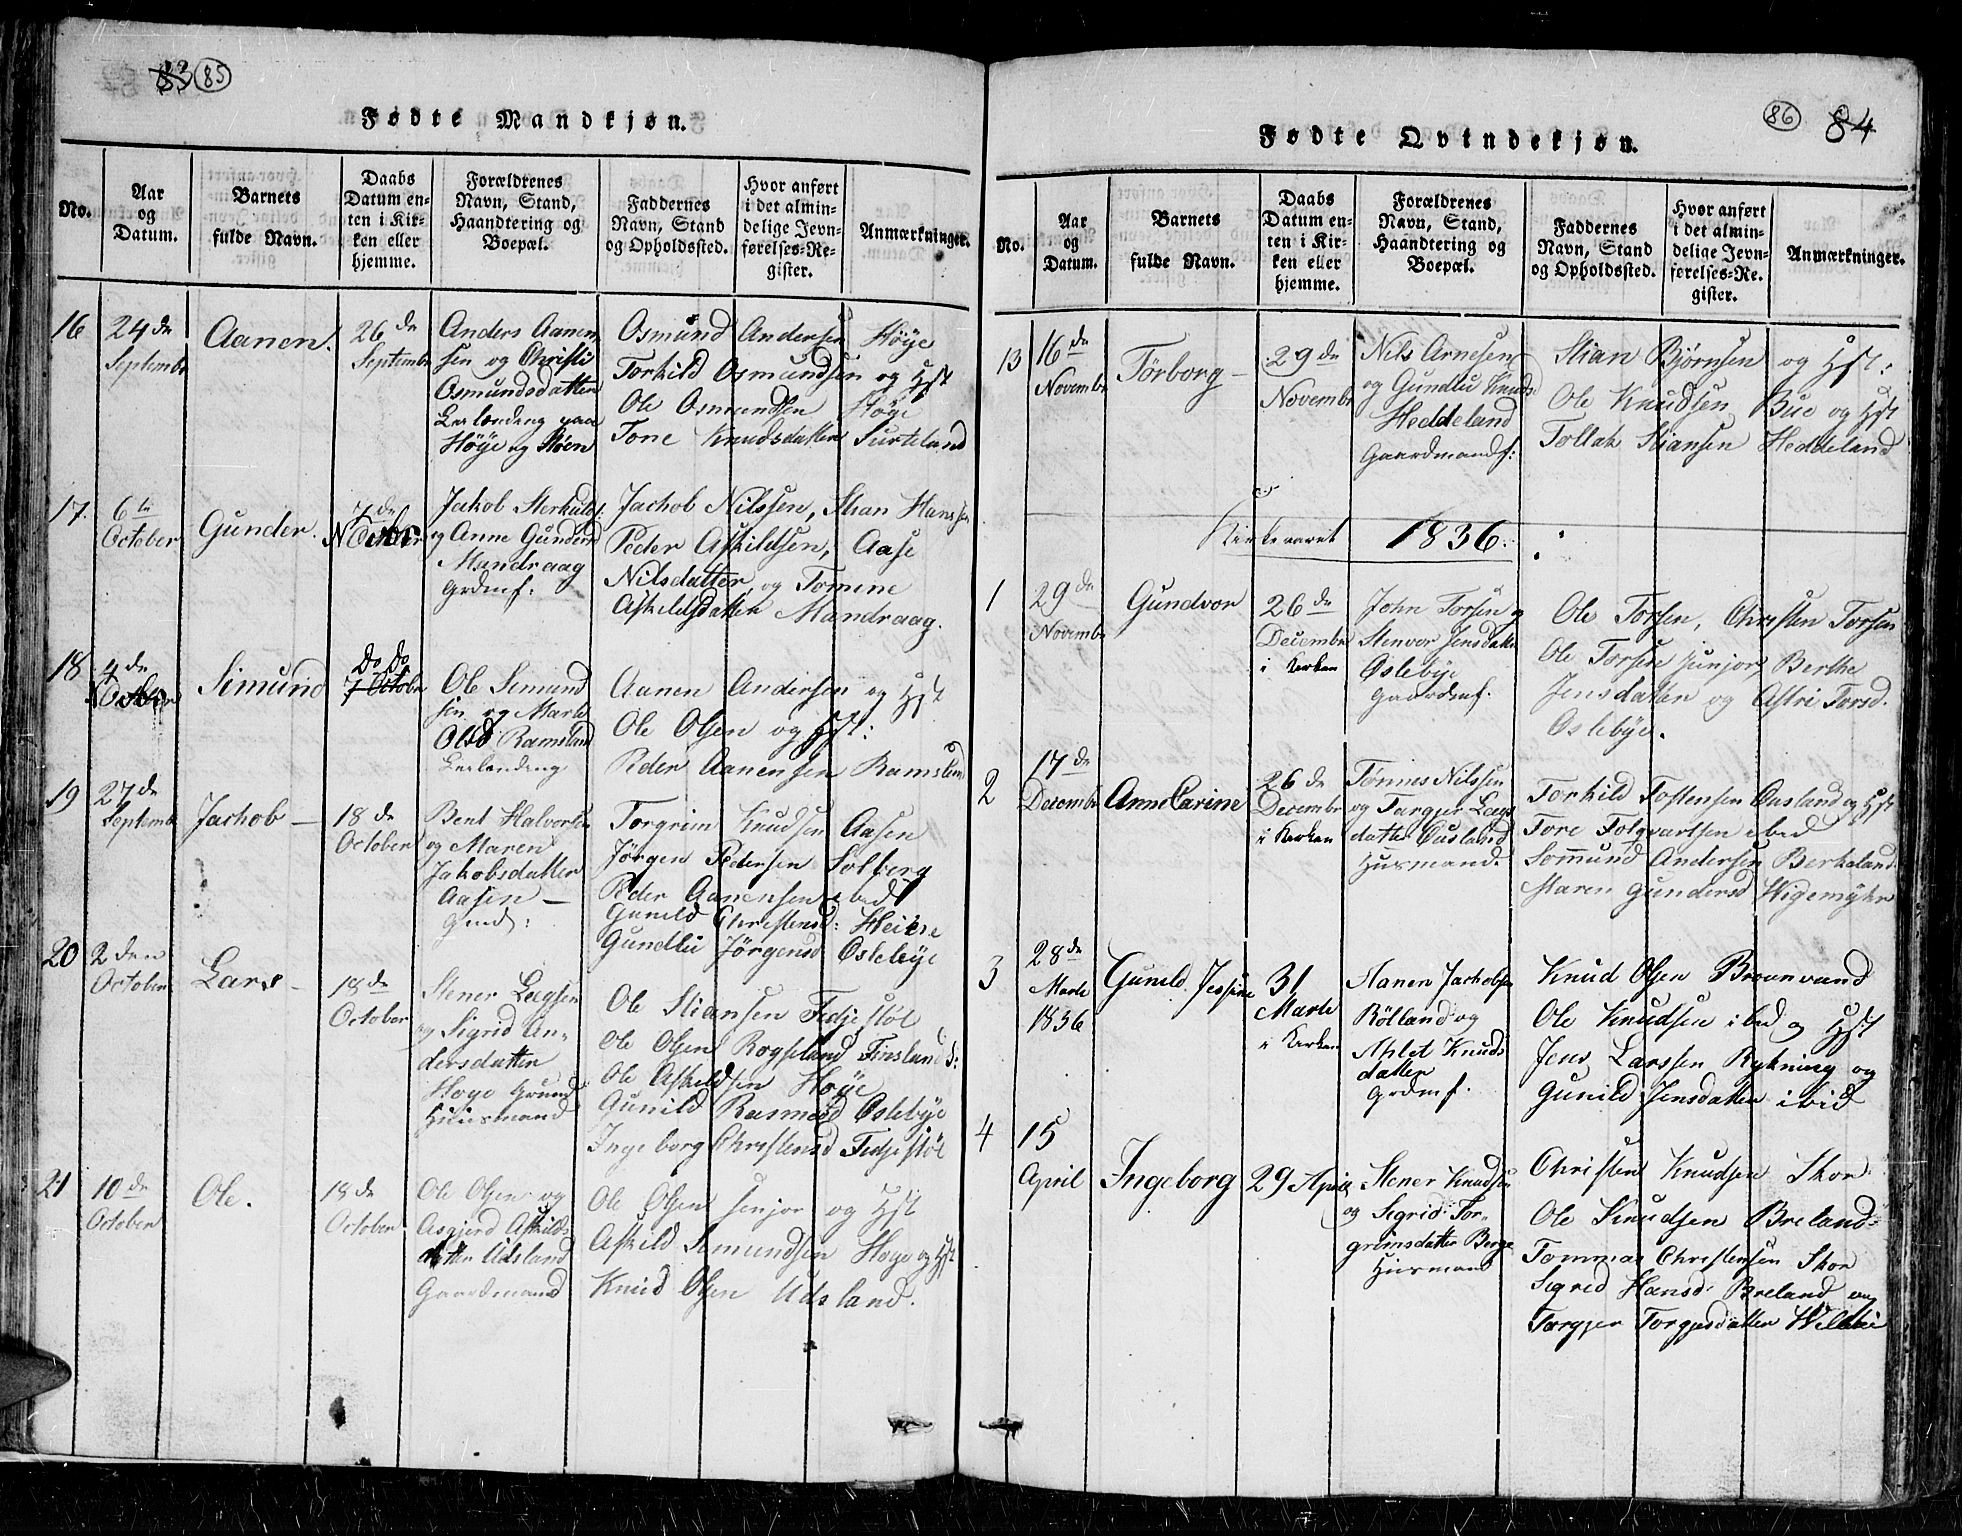 83 85
Fødte Mandkjøn.
No.
Aar
og
Datum.
Barnets
fulde Navn.
Daabs
Datum en-
ten i Kir-
ken eller
hjemme.
Forældrenes
Navn, Stand,
Haandtering og
Boepæl.
Faddernes
Navn, Stand
og Opholdssted.
Hvor anført
i det almin-
delige Jevn-
førelses-Re-
gister.
Anmærkninger.
16
24de
Septembr
Aanen.
26de
Septembr
Anders Aanen
sen og Christi
Osmundsdatter
Leilending paa
Høye og Støen
Osmund Andersen Høye
Torkild Osmundsen og Hst
Ole Osmundsen Høye
Tone Knudsdatter Surteland
17.
6te
October
Gunder.
7de
Jakob Sterkulds
og Anne Gunders
Mandraag
grdmf:
Jachob Nilssen, Stian Hanssen
Peder Askildsen, Aase
Nilsdatter, og Tomine
Askildsdatter Mandraag.
18
4de
Simund
Do Do
7 Octobr
Ole Simund
sen og Marte
Olsd Ramsland
Leilending
Aanen Andersen og Hst
Ole Olsen og Hst:
Peder Aanensen Ramsland
19
27de
Septemb
Jachob —
18de
October
Bent Halvorsen
og Maren
Jakobsdatter
Aasen —
Torgrim Knudsen Aasen
Jørgen Pedersen Solberg
Peder Aanensen ibed
Gunild Christensd: Heisse
Gundlu Jørgensd Oslebye
20
2den
October
Lars —
18de
October
Stener Lagsen
og Sigrid An-
dersdatter
Høye Grund
Huusmand
Ole Stiansen Fidjestøl
Ole Olsen Rogseland Finsland S:
Ole Askildsen Høye
Gunild Rasmusd Oslebye
Ingeborg Christensd Fidjestøl
21
10de
October
Ole.
18de
October
Ole Olsen og
Asgjerd Askilds
datter Udsland
Gaardmand
Ole Olsen senjor og Hst
Askild Simundsen Høye og Hst
Knud Olsen Udsland.
86 84
Fødte Qvindekjøn.
No.
Aar
og
Datum.
Barnets
fulde Navn.
Daabs
Datum en-
ten i Kir-
ken eller
hjemme.
Forældrenes
Navn, Stand,
Haandtering og
Boepæl.
Faddernes
Navn, Stand
og Opholdssted.
Hvor anført
i det almin-
delige Jevn-
førelses-Re-
gister.
Anmærkninger.
13
16de
Novembr
Törborg —
29de
Novembr
Nils Arnesen
og Gundlu Knuds
Heddeland
Gaardmandf:
Stian Bjørnsen og Hst:
Ole Knudsen Bue og Hst
Tollak Stiansen Heddeland
Kirkeaaret 1836.
1
29de
Novembr
Gundvor
26de
Decembr
i Kirken
John Torsen og
Stenvor Jensdatter
Oslebye
Gaardmf.
Ole Torsen, Christen Torsen
Ole Torsen junjor, Berthe
Jensdatter og Astri Torsd.
Oslebye.
2
17de
Decembr
Anne Carine
26de
Decembr
i Kirken
Tønnes Nilssen
og Targjer Lags
datter Ousland
Huusmand.
Torkild Tostensen Ousland og Hst
Tore Folqvartsen ibed
Sommund Andersen Berkeland
Maren Gundersd Wigemyhr
3
28de
Marts
1836
Gunild Jessine
31
Marts
i Kirken
Aanen Jachobsen
Rölland og
Ahlet Knuds
datter
grdmf.
Knud Olsen Brounvand
Ole Knudsen ibed og Hst
Jens Larssen Rykning og
Gunild Jensdatter ibid
4
15
April
Ingeborg
29 April
Stener Knudsen
og Sigrid Tor-
grimsdatter Berge
Huusmand
Christen Knudsen Skor
Ole Knudsen Breland
Tommas Christensen Skor
Sigrid Hansd: Breland og
Targjer Torgjusdatter